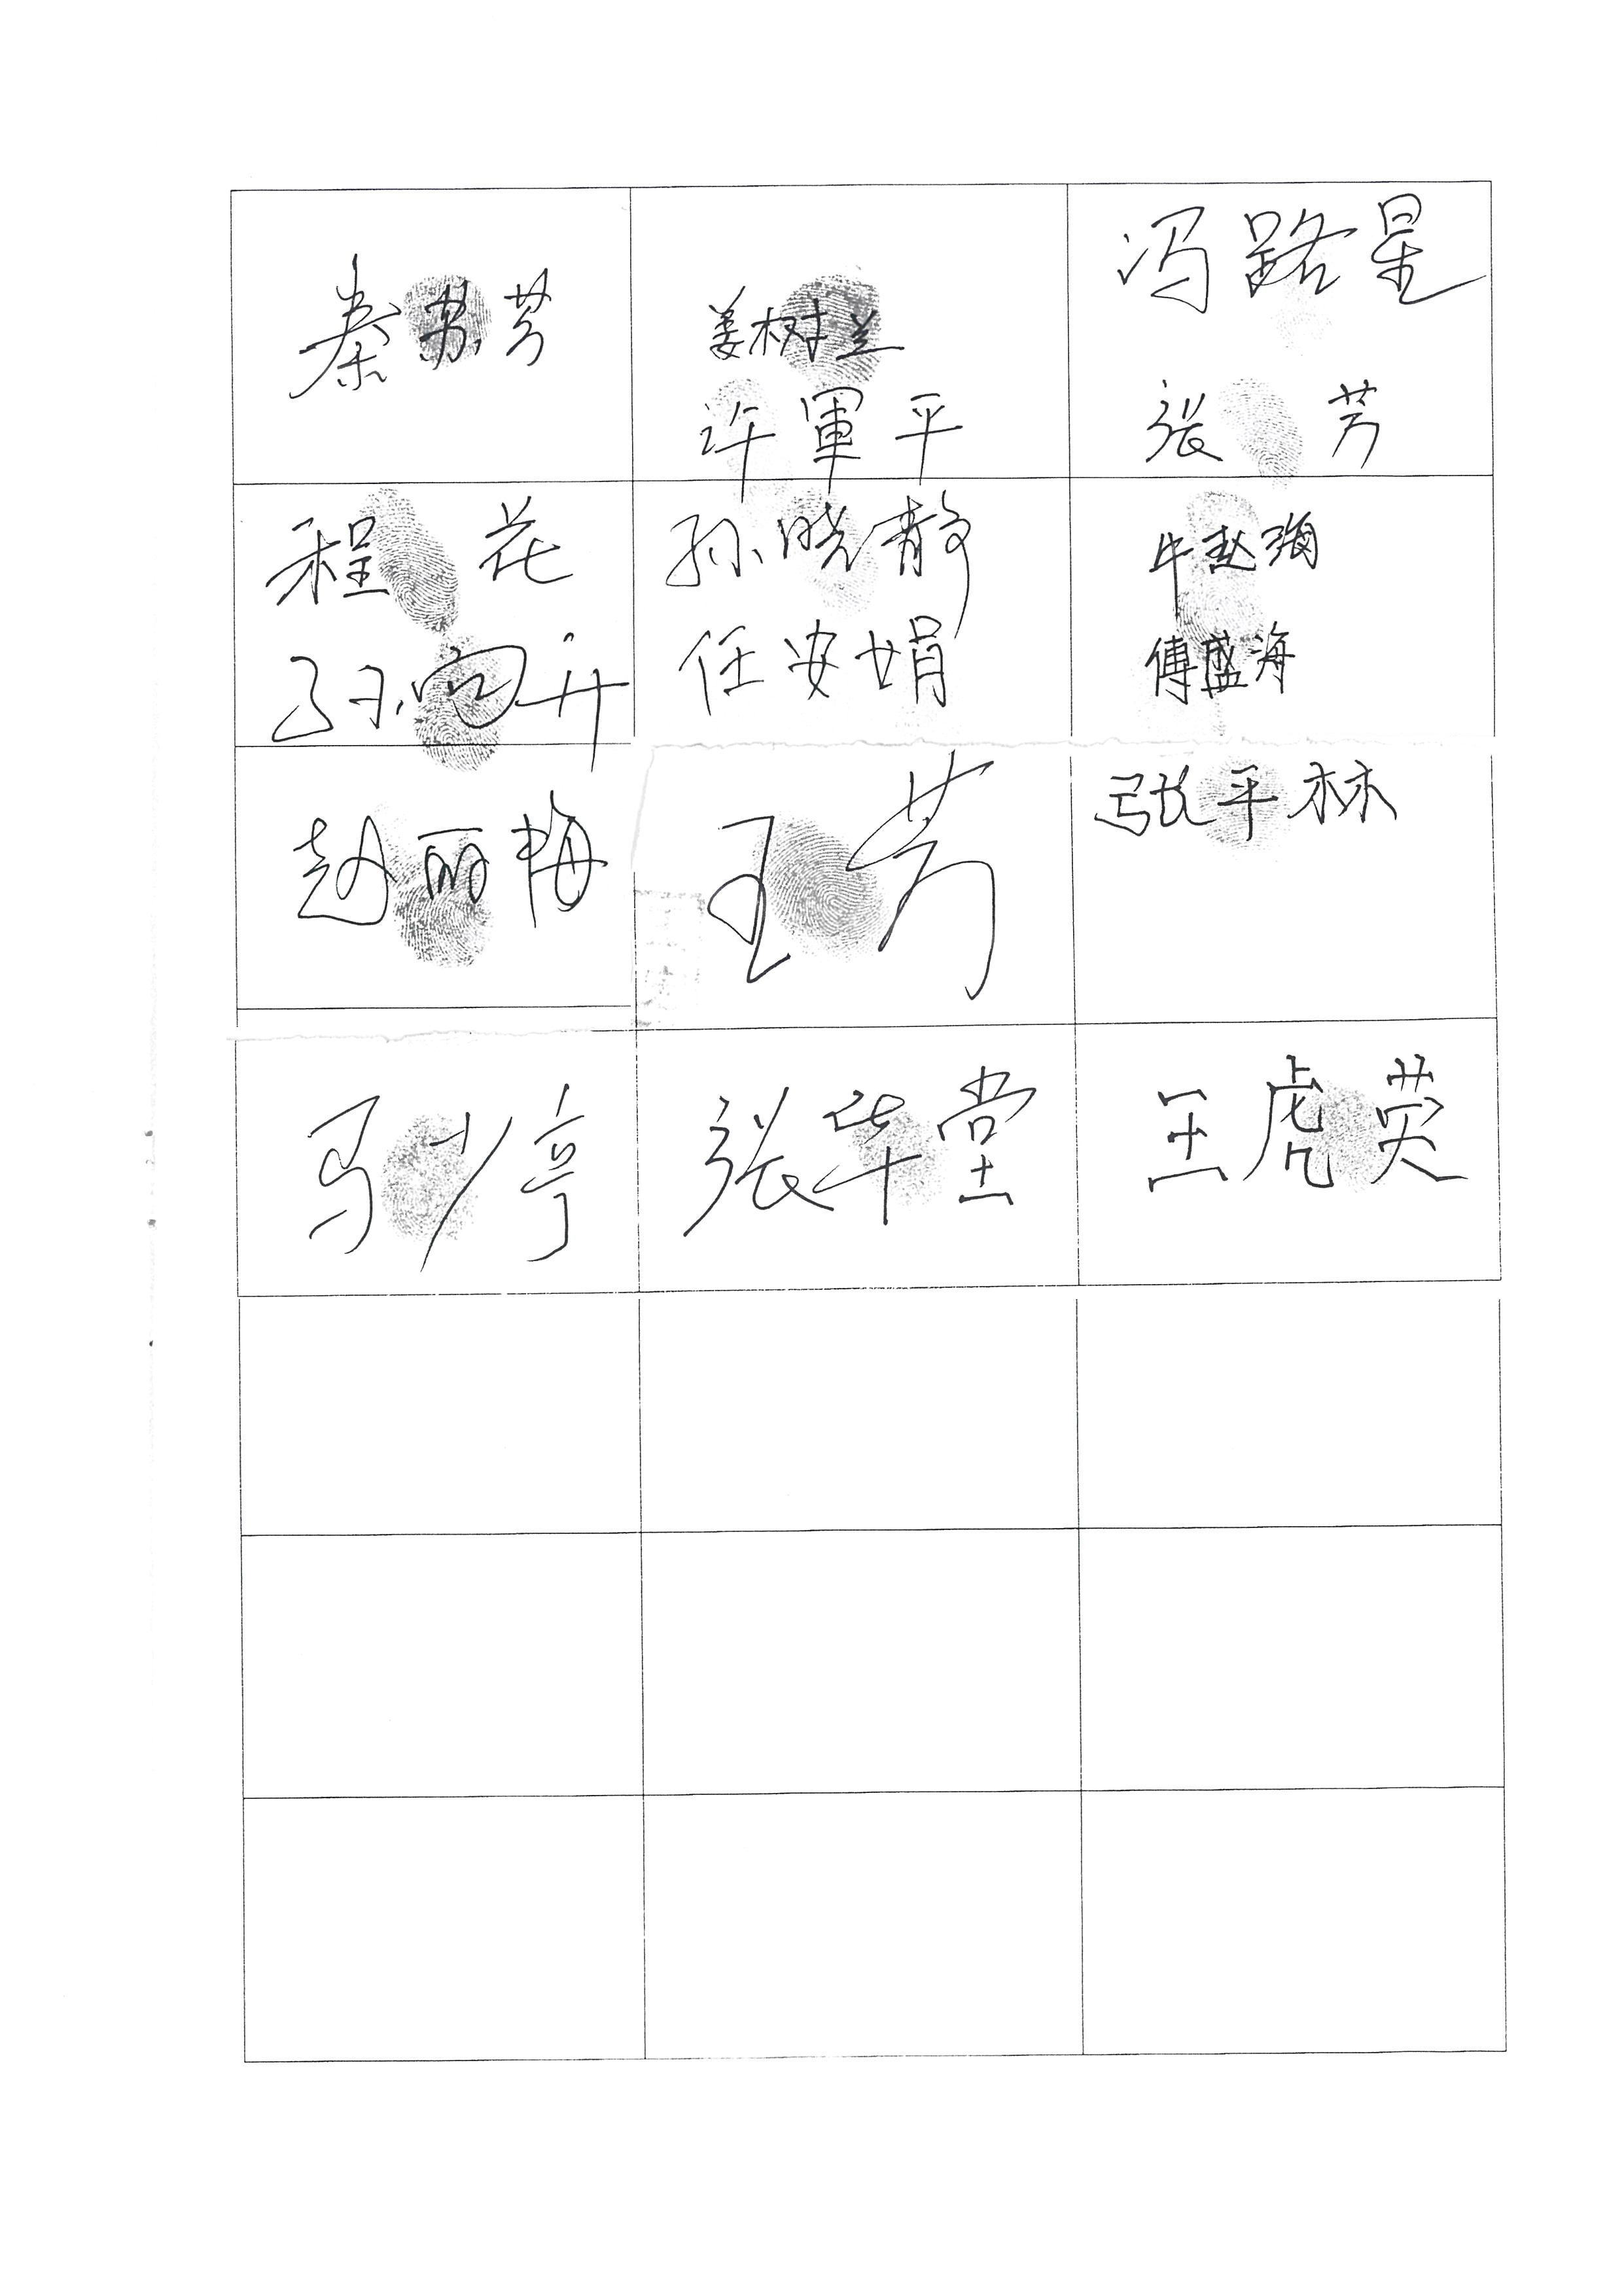 秦苏芳
姜树兰
许軍平
冯路星
张芳
程花
孙
孙晓静
任安娟
牛赵
傅盛海
赵丽梅
王芳
张平林
马少亭
张华堂
王虎英